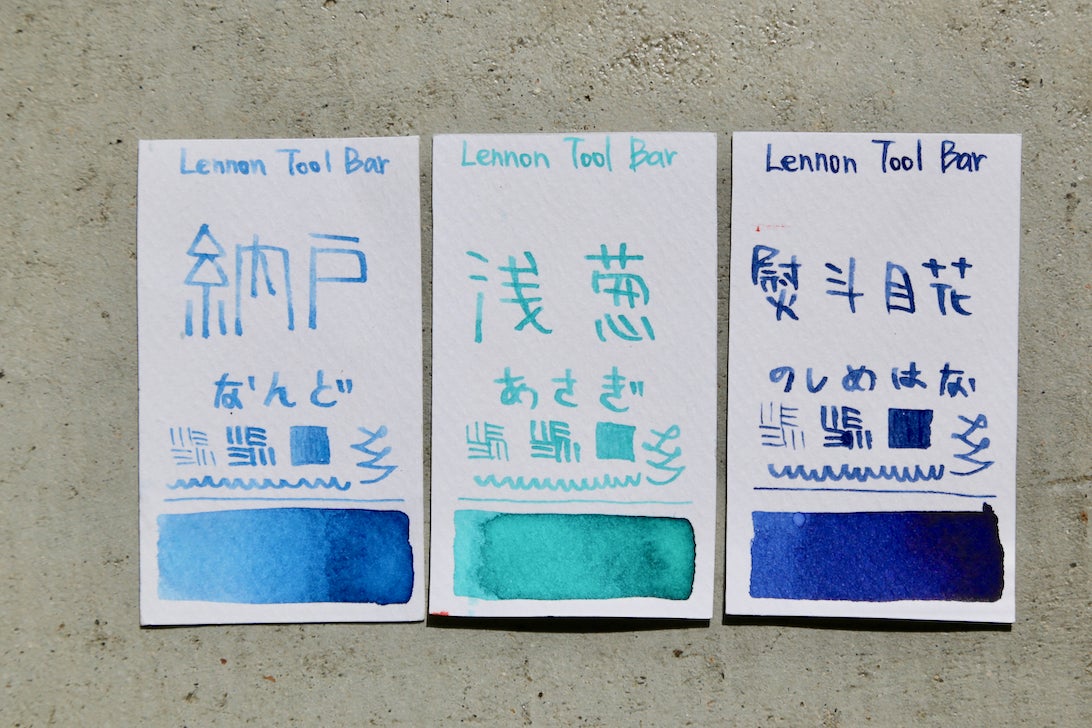 Lennon Tool Bar
納戸
なんど
Lennon Tool Bar
浅葱
あさぎ
Lennon Tool Bar
熨斗目花
のしめはな